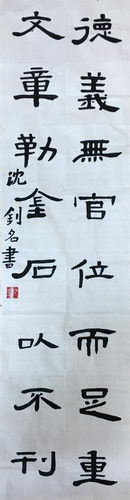 德義無官位而足重
文章勒金石以不刊
沈釗名書